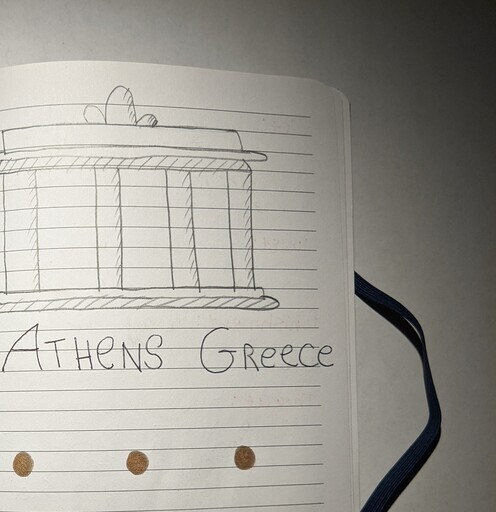 Athens Greece